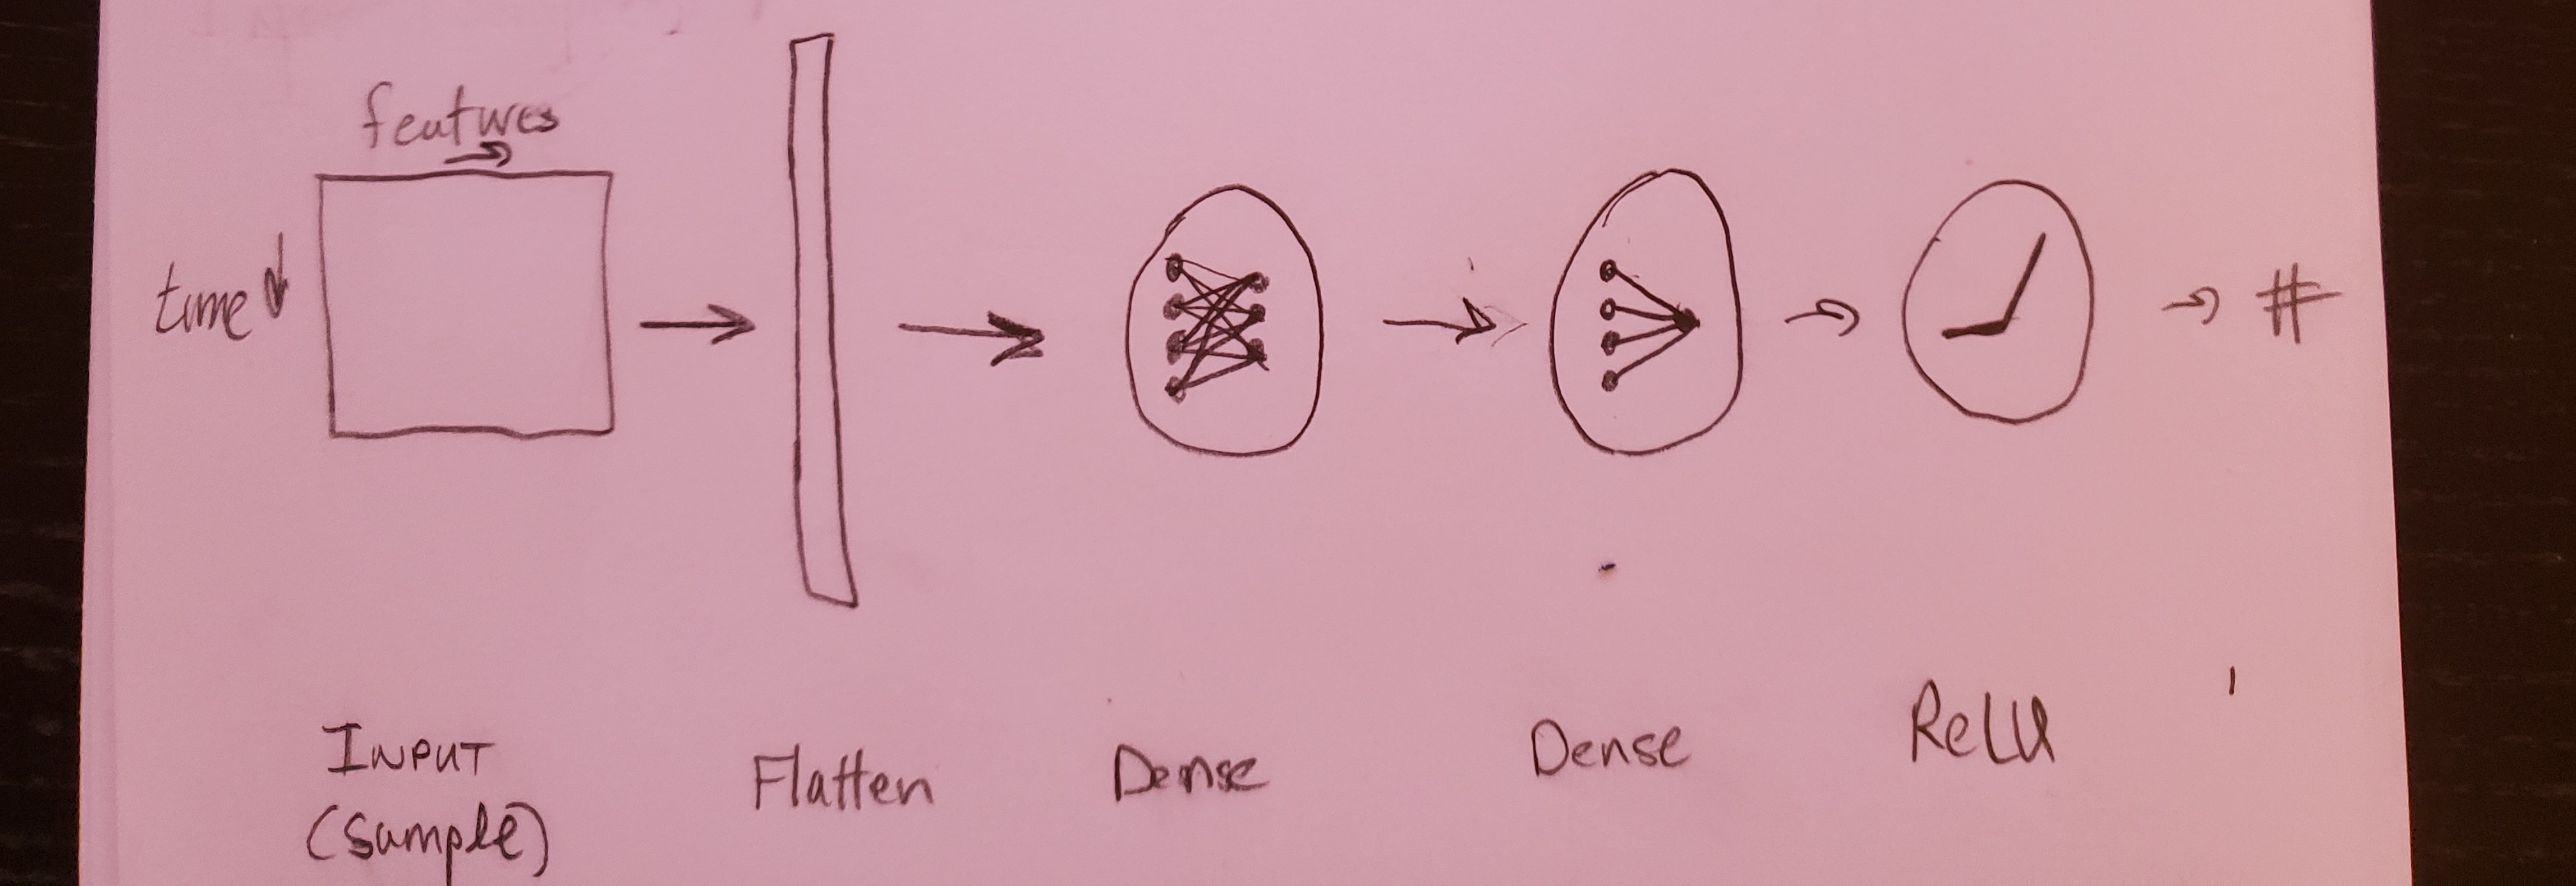 features
time
#
INPUT
(sample)
Flatten
Dense
Dense
ReLU